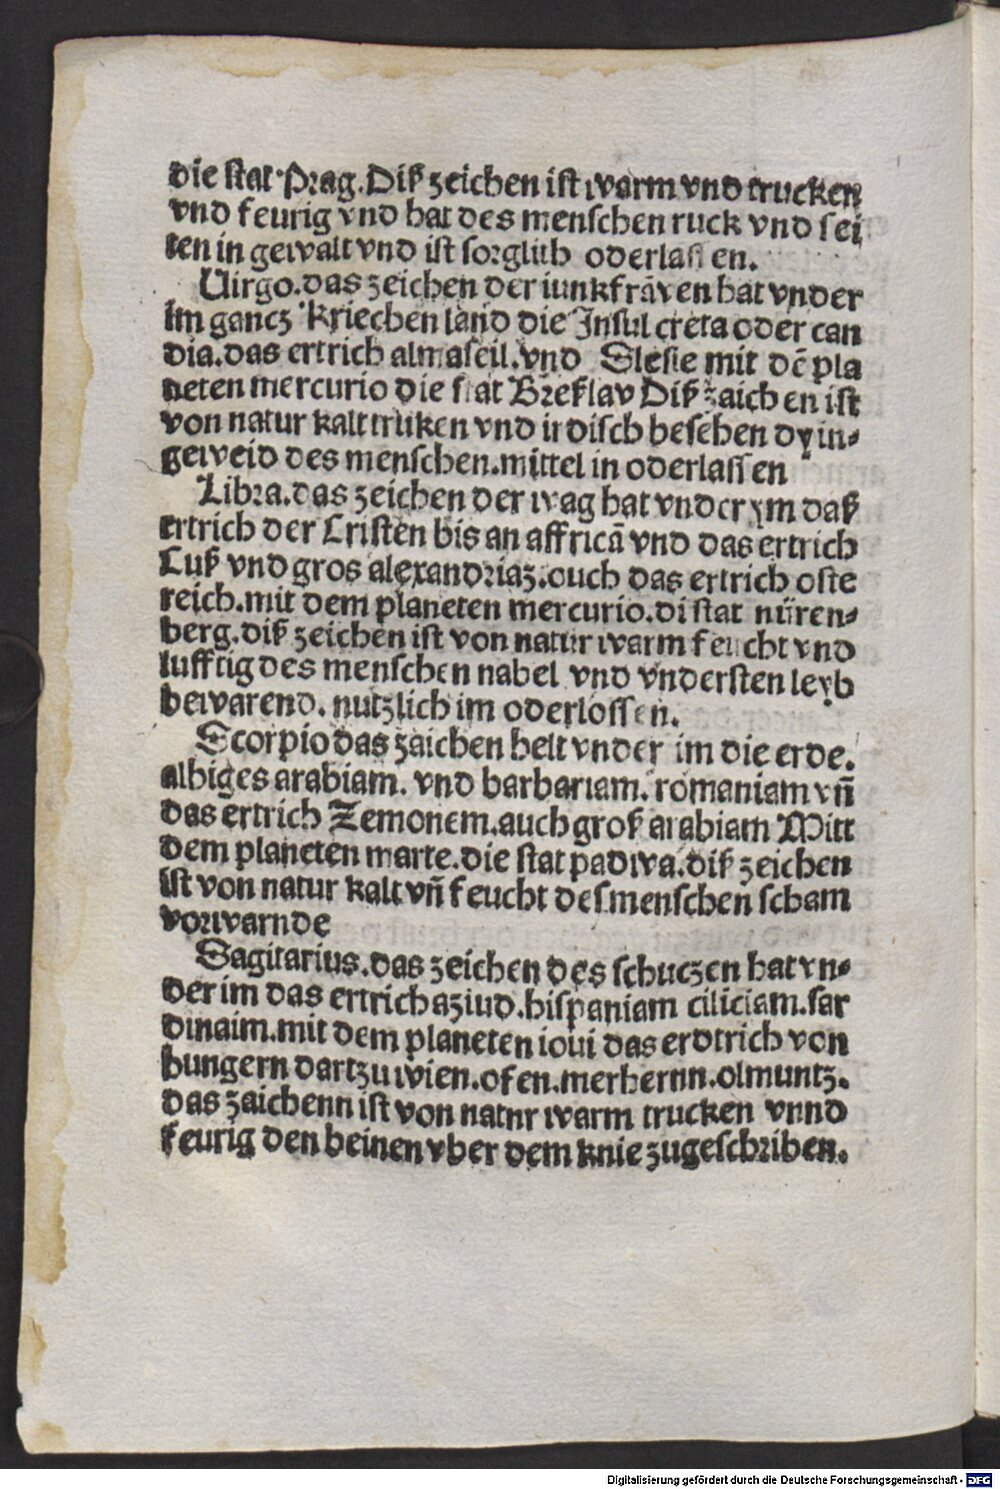 die stat Prag. Diß zeichen ist warm vnd trucken
vnd feurig vnd hat des menschen ruck vnd sei
ten in gewalt vnd ist sorglich oderlassen.
Uirgo. das zeichen der iunkfrawen hat vnder
im gancz Kriechen land die Insul creta oder can
dia. das ertrich almaseil. vnd Slesie mit dē pla
neten mercurio die stat Breßlav Diß zaichen ist
von natur kalt truken vnd irdisch besehen dy in-
geweid des menschen. mittel in oderlassen
Libra. das zeichen der wag hat vnder ym daß
ertrich der Cristen bis an affricā vnd das ertrich
Luß vnd gros alexandriaz. ouch das ertrich oste
reich. mit dem planeten mercurio. di stat nüren-
berg. diß zeichen ist von natur warm feucht vnd
lufftig des menschen nabel vnd vndersten leyb
bewarend. nutzlich im oderlossen.
Scorpio das zaichen helt vnder im die erde.
albiges arabiam. vnd barbariam. romaniam vn̄
das ertrich Zemonem. auch groß arabiam Mitt
dem planeten marte. die stat padwa. diß zeichen
ist von natur kalt vn̄ feucht des menschen scham
vorwarnde
Sagitarius. das zeichen des schuczen hat vn-
der im das ertrich aziud. hispaniam ciliciam. sar
dinaim. mit dem planeten ioui das erdtrich von
hungern dartzu wien. ofen. merhernn. olmuntz.
das zaichenn ist von natnr warm trucken vnnd
feurig den beinen vber dem knie zugeschriben.
Digitalisierung gefördert durch die Deutsche Forschungsgemeinschaft - DFG